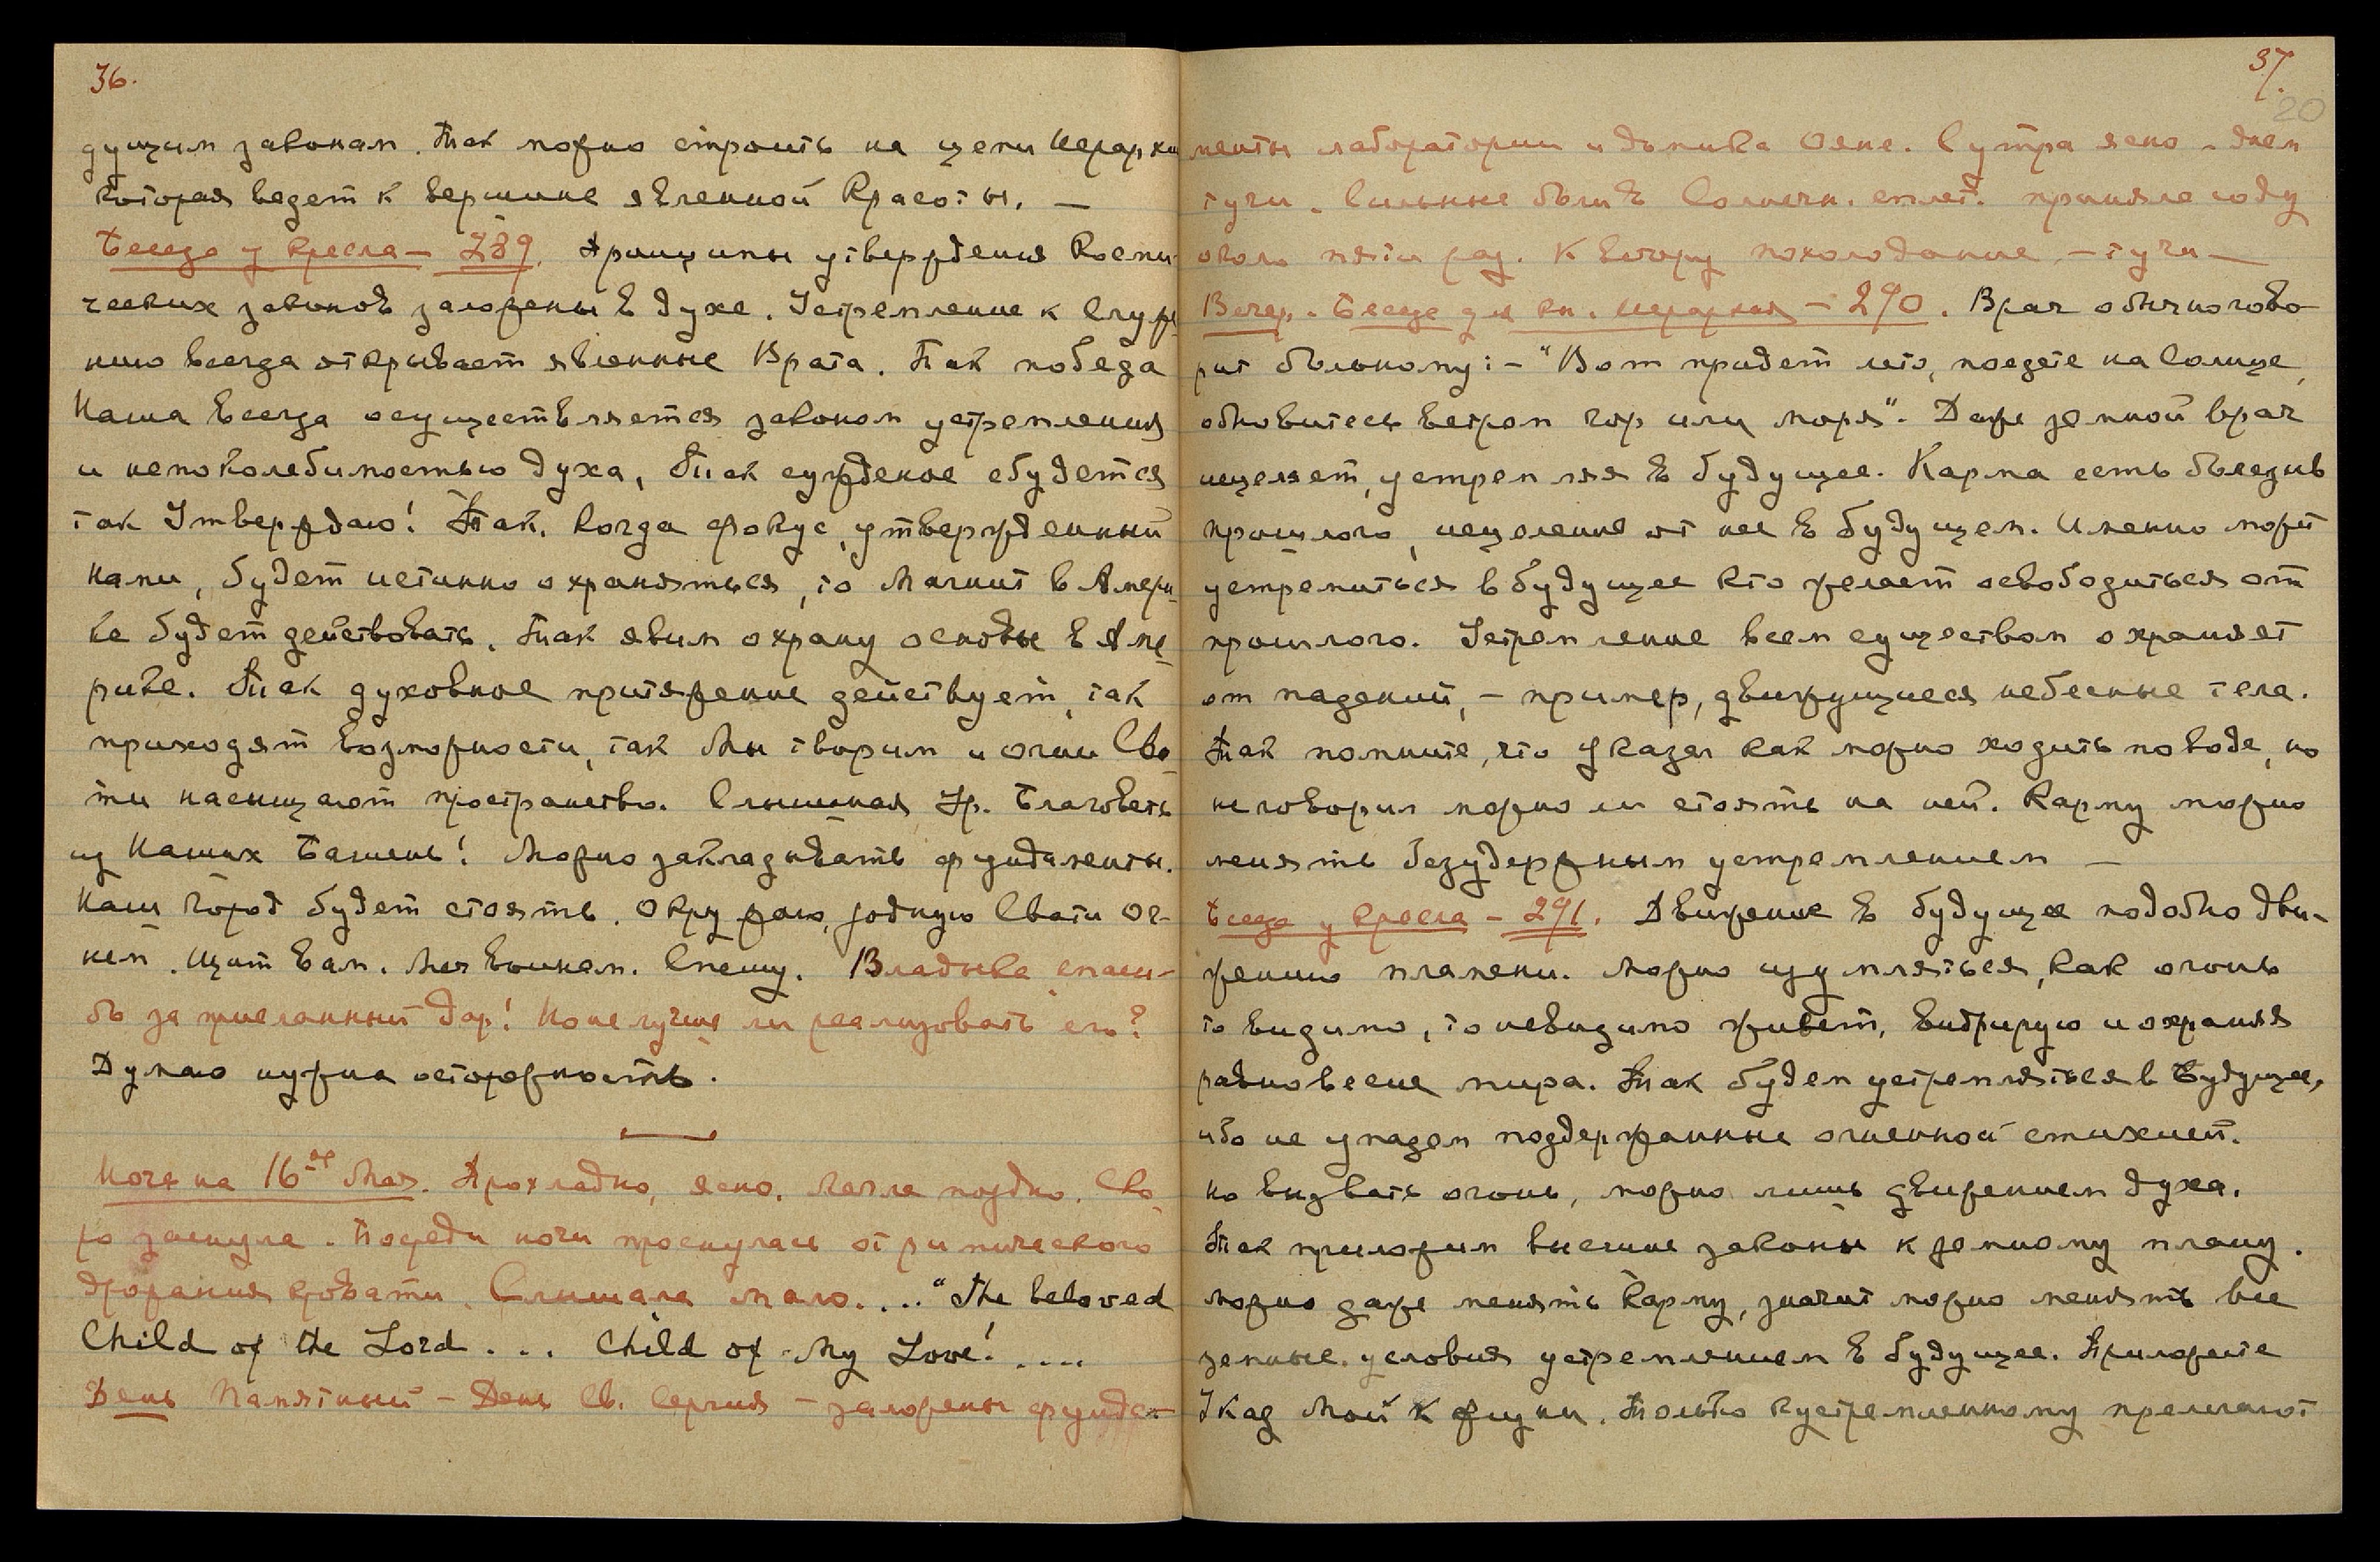 36.
дущим законам. Так можно строить на цепи Иерархии
которая ведет к вершине явленной Красоты. —
Беседа у кресла – 289. Принципы утверждения Косми-
ческих законов заложены в духе. Устремление к Служе-
нию всегда открывает явленные Врата. Так победа
Наша всегда осуществляется законом устремления
и непоколебимостью духа, Так сужденое сбудется
так Утверждаю! Так, когда фокус, утвержденный
Нами, будет истинно охраняться, то Магнит в Амери-
ке будет действовать. Так явим охрану основы в Аме-
рике. Так духовное притяжение действует, так
приходят возможности, так Мы творим и огни Свя-
ти насыщают пространство. Слышная Ур. Благовесть
из Наших Башень! Можно закладывать фундаменты.
Наш Город будет стоять. Окружаю, родную Свати Ог-
нем. Щит вам. Меч воинам. Спешу. Владыка, спаси-
бо за присланный дар! Но не лучше ли реализовать его?
Думаю нужна осторожность.
Ночь на 16ое Мая. Прохладно, ясно. Легла поздно. Ско-
ро заснула. Посреди ночи проснулась от ритмического
дрожания кровати. Слышала мало.... "The beloved
Child of the Lord... Child of My Love!....
День Памятный – День Св. Сергия – заложены фунда-
37.
20
менты лаборатории и домика Ояне. С утра ясно – днем
тучи. Сильные были солнечн. сплет. приняла соду
около пяти раз. К вечеру похолодание, – тучи —
Вечер. Беседа для кн. Иерархия – 290. Врач обычно гово-
рит больному: – "Вот придет лето, поедете на Солнце,
обновитесь ветром гор или моря". Даже земной врач
исцеляет, устремляя в будущее. Карма есть болезнь
прошлого, исцеление от нее в будущем. Именно может
устремиться в будущее кто желает освободиться от
прошлого. Устремление всем существом охраняет
от падений, – пример, движущиеся небесные тела.
Так помните, что Указал как можно ходить по воде, но
не говорил можно ли стоять на ней. Карму можно
менять безудержным устремлением —
Беседа у кресла – 291. Движение в будущее подобно дви-
жению пламени. Можно изумляться, как огонь
то видимо, то невидимо живет, вибрирую и охраняя
равновесие мира. Так будем устремляться в Будущее,
ибо не упадем поддержанные огненной стихией.
Но вызвать огонь, можно лишь движением духа.
Так приложим высшие законы к земному плану.
Можно даже менять Карму, значит можно менять все
земные условия устремлением в будущее. Приложите
Указ Мой к жизни. Только к устремленному прилагают